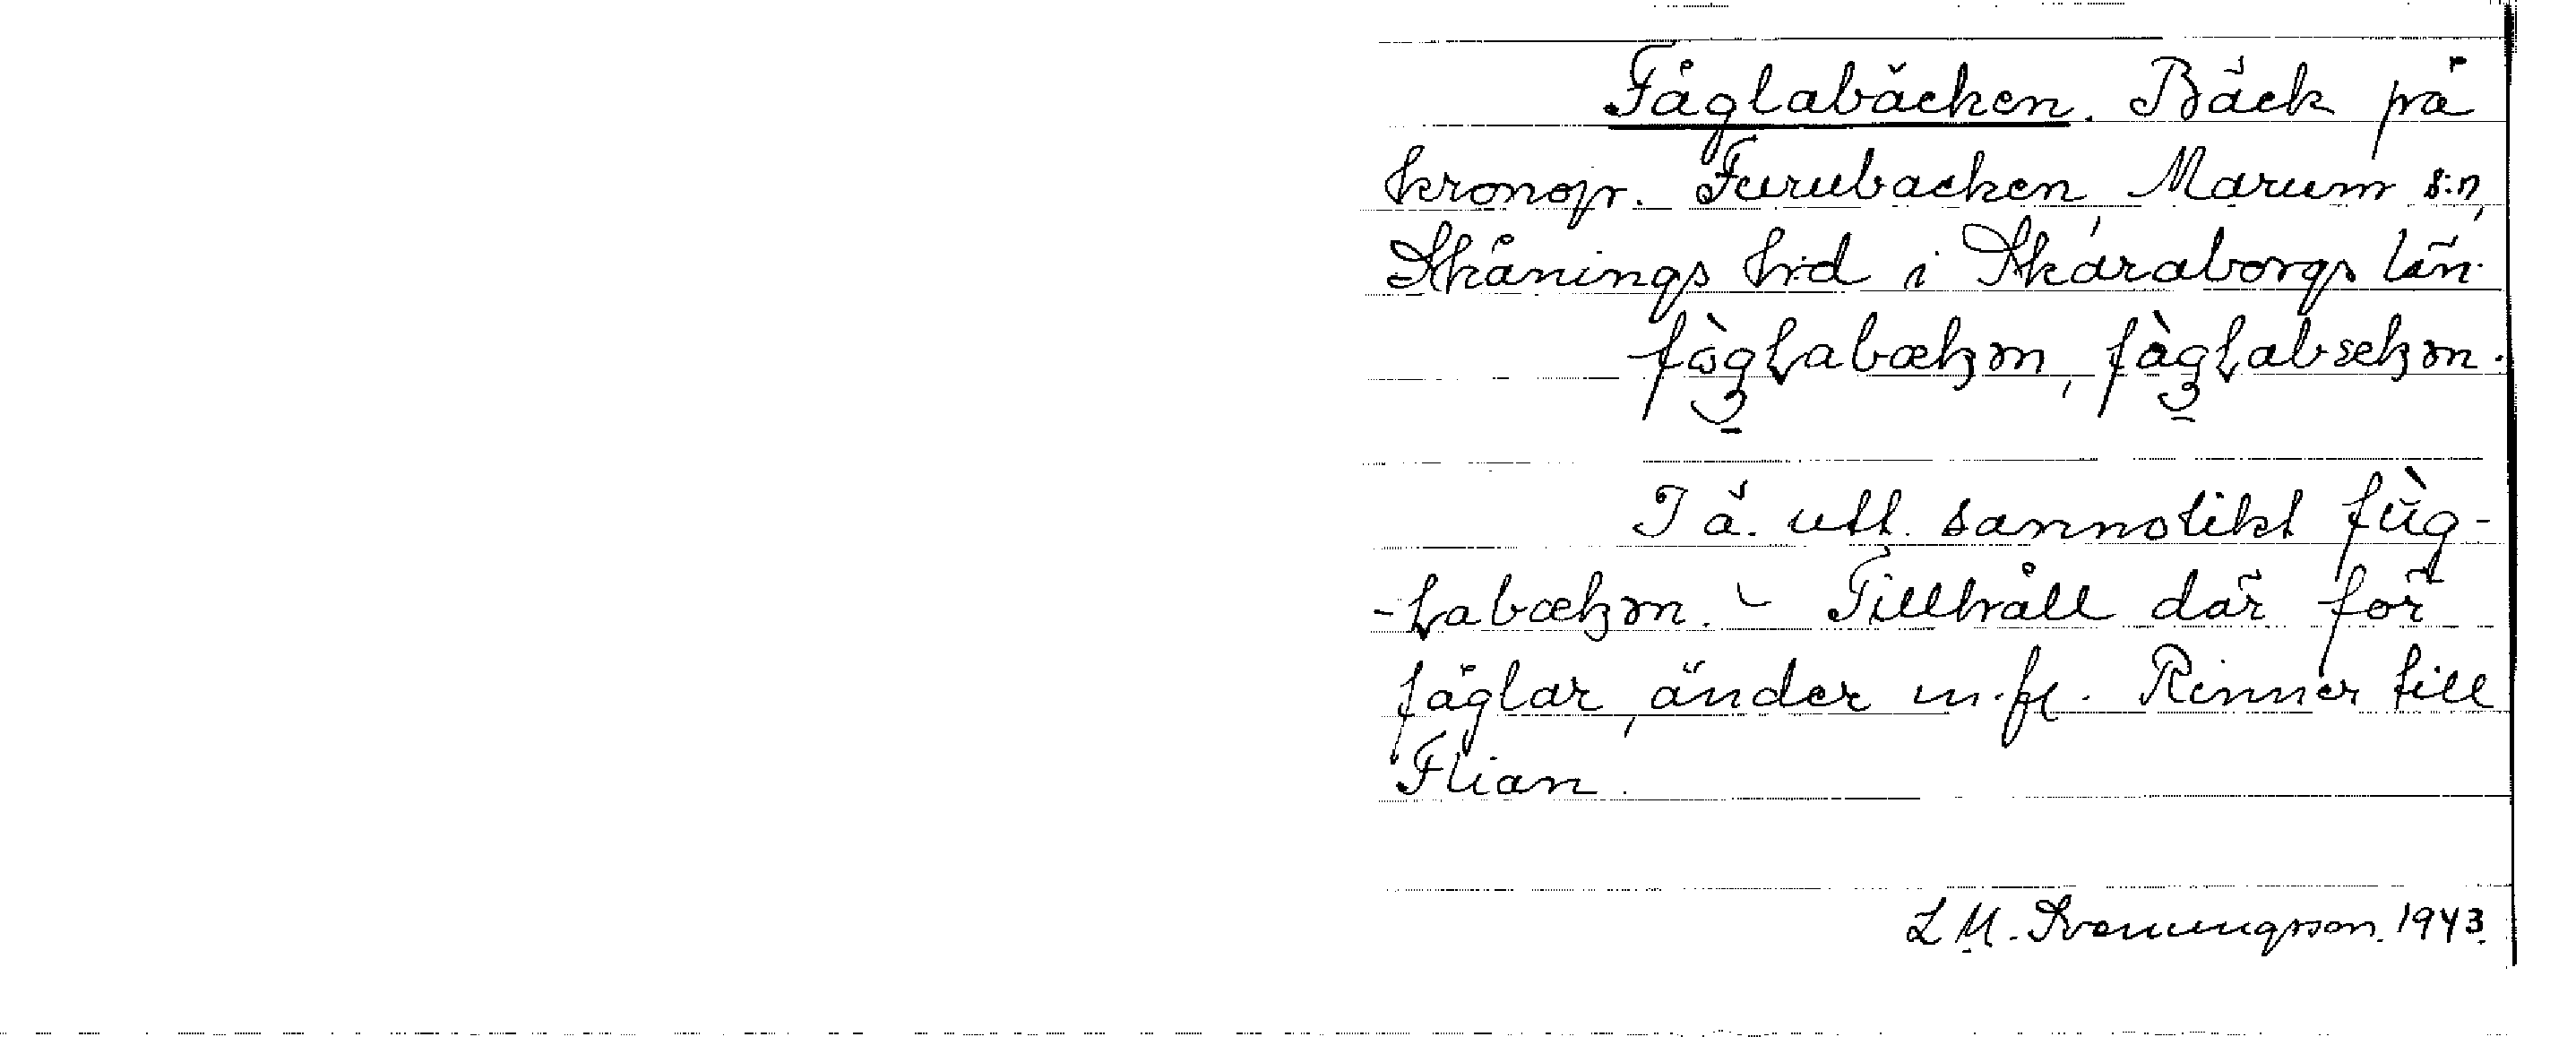 Fåglabäcken. Bäck på
kronopr. Furubacken, Marum s:n,
Skånings h:d i Skaraborgs län.
I ä. utt. sannolikt fùg-
Tillhåll där för
fåglar, änder m.fl. Rinner till
Flian.
L M. Svenungsson. 1943.